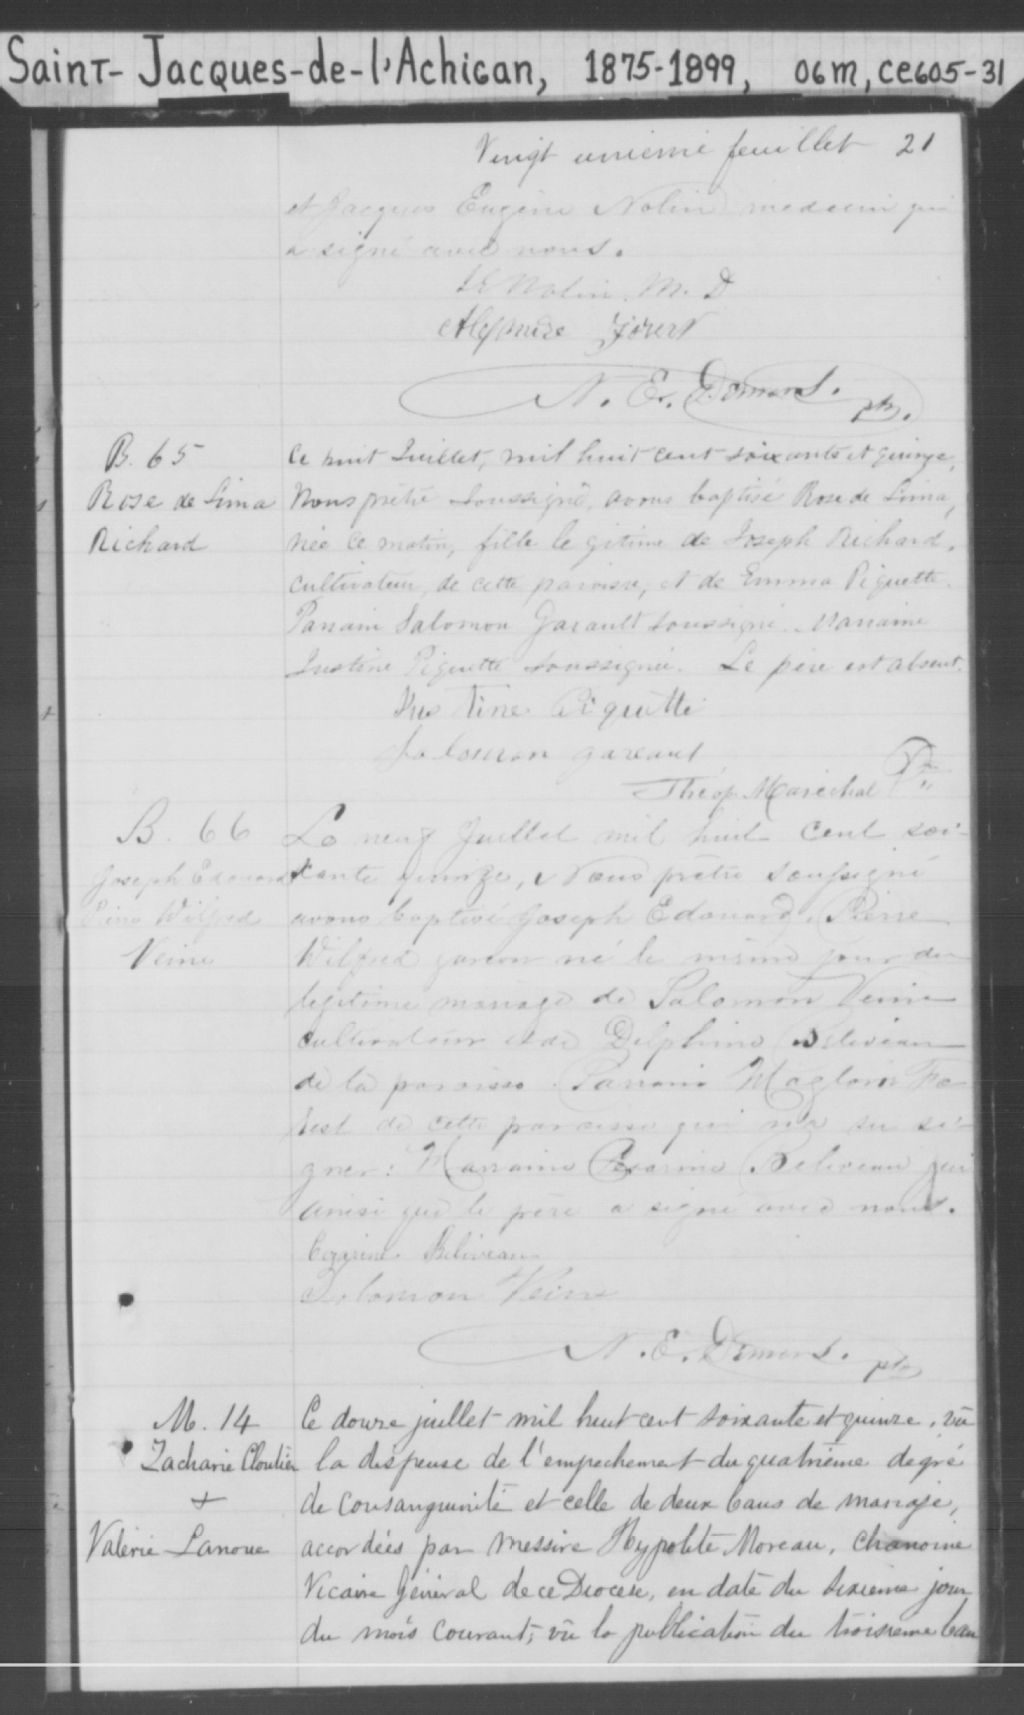 Saint-Jacques-de-l'Achigan, 1875-1899, 06M, CE605-31
Vingt unieme feuillet 21
et Jacques Eugène Nolin médecin qui
a signé avec nous.
J E Nolin. M. D
N. E. Demers. ptre.
B. 65
Rose de Lima
Richard
Ce huit Juillet, mil huit cent soixante et quinze,
Nous prêtre soussigné, avons baptisé Rose de Lima,
née ce matin, fille legitime de Joseph Richard,
cultivateur, de cette paroisse, et de Emma Piquette.
Parrain Salomon Gareault soussigné. Marraine
Justine Piquette soussignée. Le père est absent.
Justine Piquette
Salomon Gareaut
Théop. Maréchal Ptre
B. 66
Joseph Edouard
Pierre Wilfred
Veine
Le neuf Juillet mil huit cent soi-
xante quinze, Nous prêtre soussigné
avons baptisé Joseph Edouard Pierre
Wilfred garçon né le même jour du
legitime mariage de Salomon Veine
cultivateur et de Delphine Beliveau
de la paroisse. Parrain Magloire Fo
rest de cette paroisse qui n'a su si-
gner: Marraine Césarine Beliveau qui
ainsi que le père a signé avec nous.
Cezarine Beliveau
Solomon Vein
N. E. Demers. ptre
M. 14
Zacharie Cloutier
+
Valérie Lanoue
Ce douze juillet mil huit cent soixante et quinze, vû
la dispense de l'empechement du quatrième degré
de consanguinité et celle de deux bans de mariage,
accordées par messire Hypolite Moreau, chanoine
Vicaire Général de ce Diocèse, en date du sixieme jour
du mois courant; vû la publication du troisieme ban